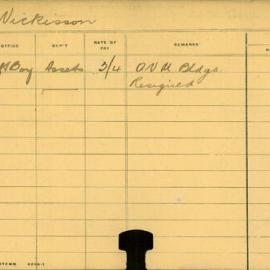 Vickisson
OFFICE DEP'T RATE OF PAY REMARKS
Boy Assets 3/4 O.V.M. Bldgs.
Resigned